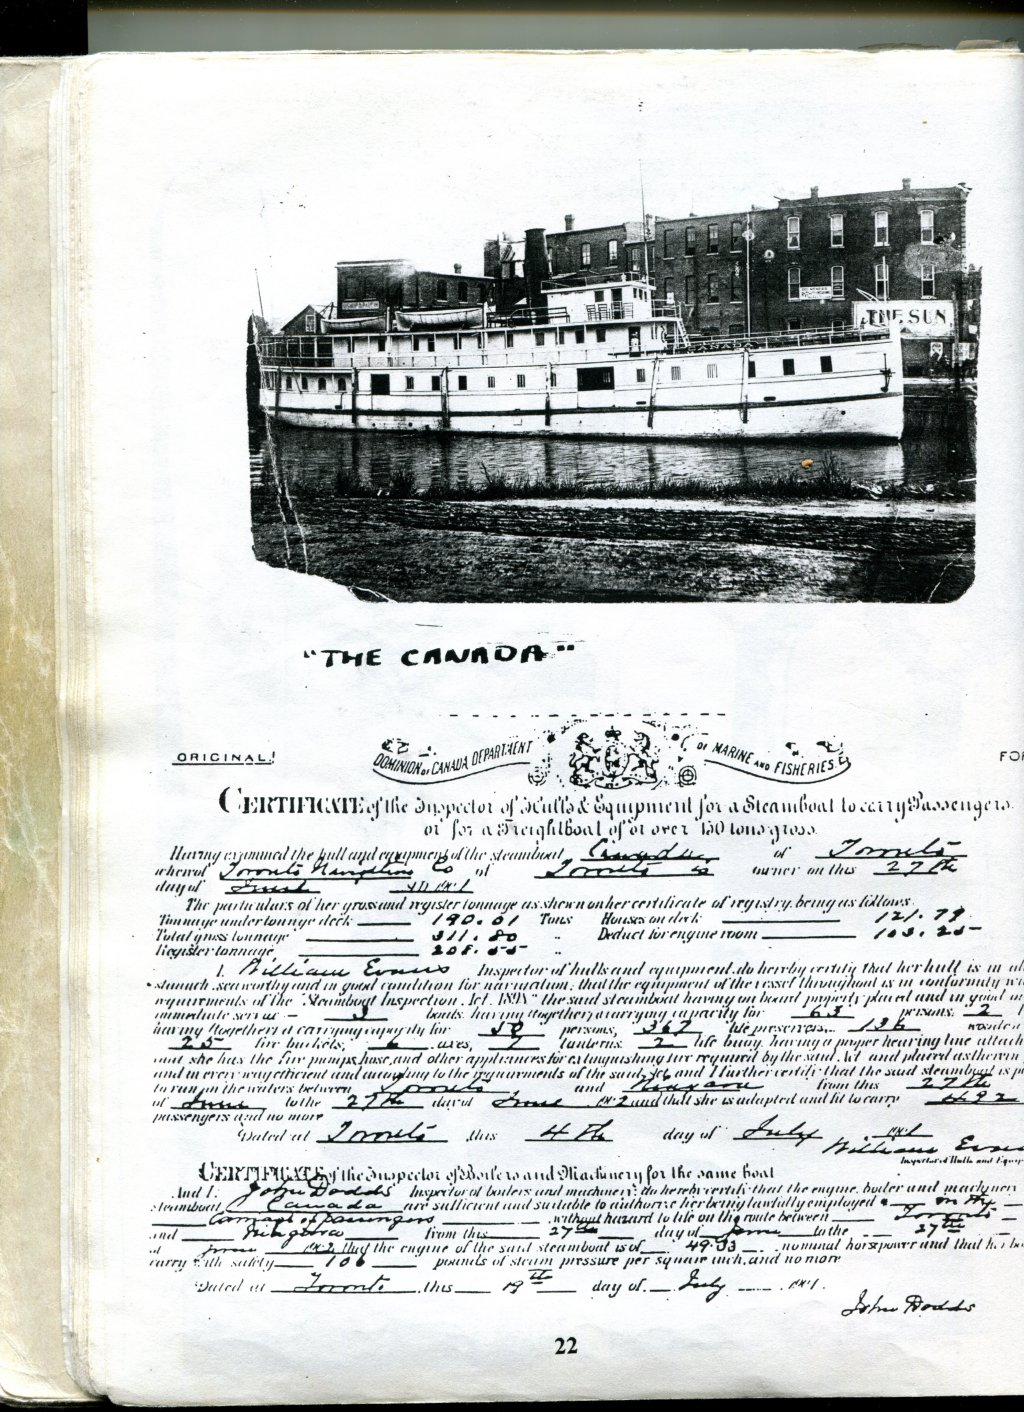 THE SUN
CANADA
"THE CANADA"
ORIGINAL!
DOMINION OF CANADA DEPARTMENT OF MARINE AND FISHERIES.
CERTIFICATE of the Inspector of Hulls & Equipment for a Steamboat to carry Passengers
or for a Freight Boat of or over 150 tons gross.
Having examined the hull and equipment of the steamboat Canada of Toronto
whereof Toronto Navigation Co of Toronto is owner on this 27th
day of June
The particulars of her gross and register tonnage as shewn on her certificate of registry being as follows
Tonnage under tonnage deck 190.01 Tons Houses on deck 121.79
Total gross tonnage 311.80 " Deduct for engine room 103.25
Register tonnage 208.55 "
I, William Evans Inspector of hulls and equipment, do hereby certify that her hull is in
staunch, seaworthy and in good condition for navigation; that the equipment of the vessel throughout is in conformity
requirements of the "Steamboat Inspection Act. 1898" the said steamboat having on board properly placed and in good
immediate service 3 boats, having (together) a carrying capacity for 63 persons, 2
having (together) a carrying capacity for 50 persons, 367 life preservers, 136
25 fire buckets, 6 axes, 7 lanterns 2 life buoy, having a proper heaving line
and she has the fire pumps, hose, and other appliances for extinguishing fire required by the said Act and placed as therein
and in every way efficient and according to the requirements of the said Act and I further certify that the said steamboat is
to run on the waters between Toronto and Niagara from this 27th
of June to the 27th day of June and that she is adapted and fit to carry 492
passengers and no more
Dated at Toronto this 4th day of July
William Evans
Inspector of Hulls and
CERTIFICATE of the Inspector of Boilers and Machinery for the same boat
And I, John Dodds Inspector of boilers and machinery, do hereby certify that the engine, boiler and machinery
steamboat Canada are sufficient and suitable to authorize her being lawfully employed in the
Carriage of passengers without hazard to life on the route between Toronto
and Niagara from this 27th day of June to the 27th
of June that the engine of the said steamboat is of 49.33 nominal horsepower and that
carry with safety 106 pounds of steam pressure per square inch, and no more
Dated at Toronto this 19th day of July
John Dodds
22